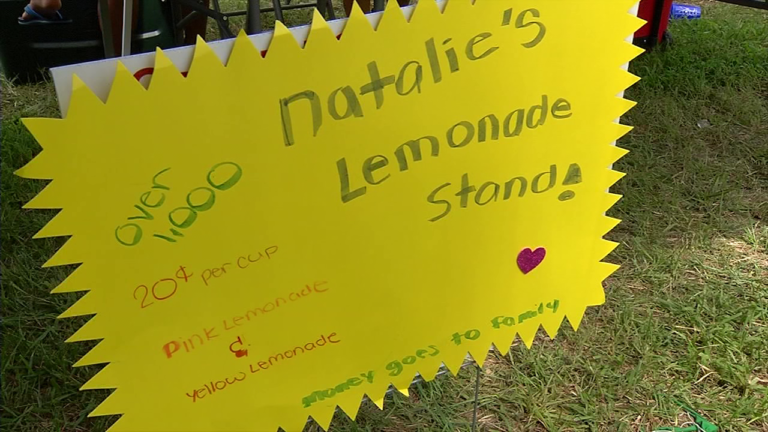 Natalie's
Lemonade
Stand!
over
1,000
20¢ per cup
Pink Lemonade
&
Yellow Lemonade
Money goes to Family